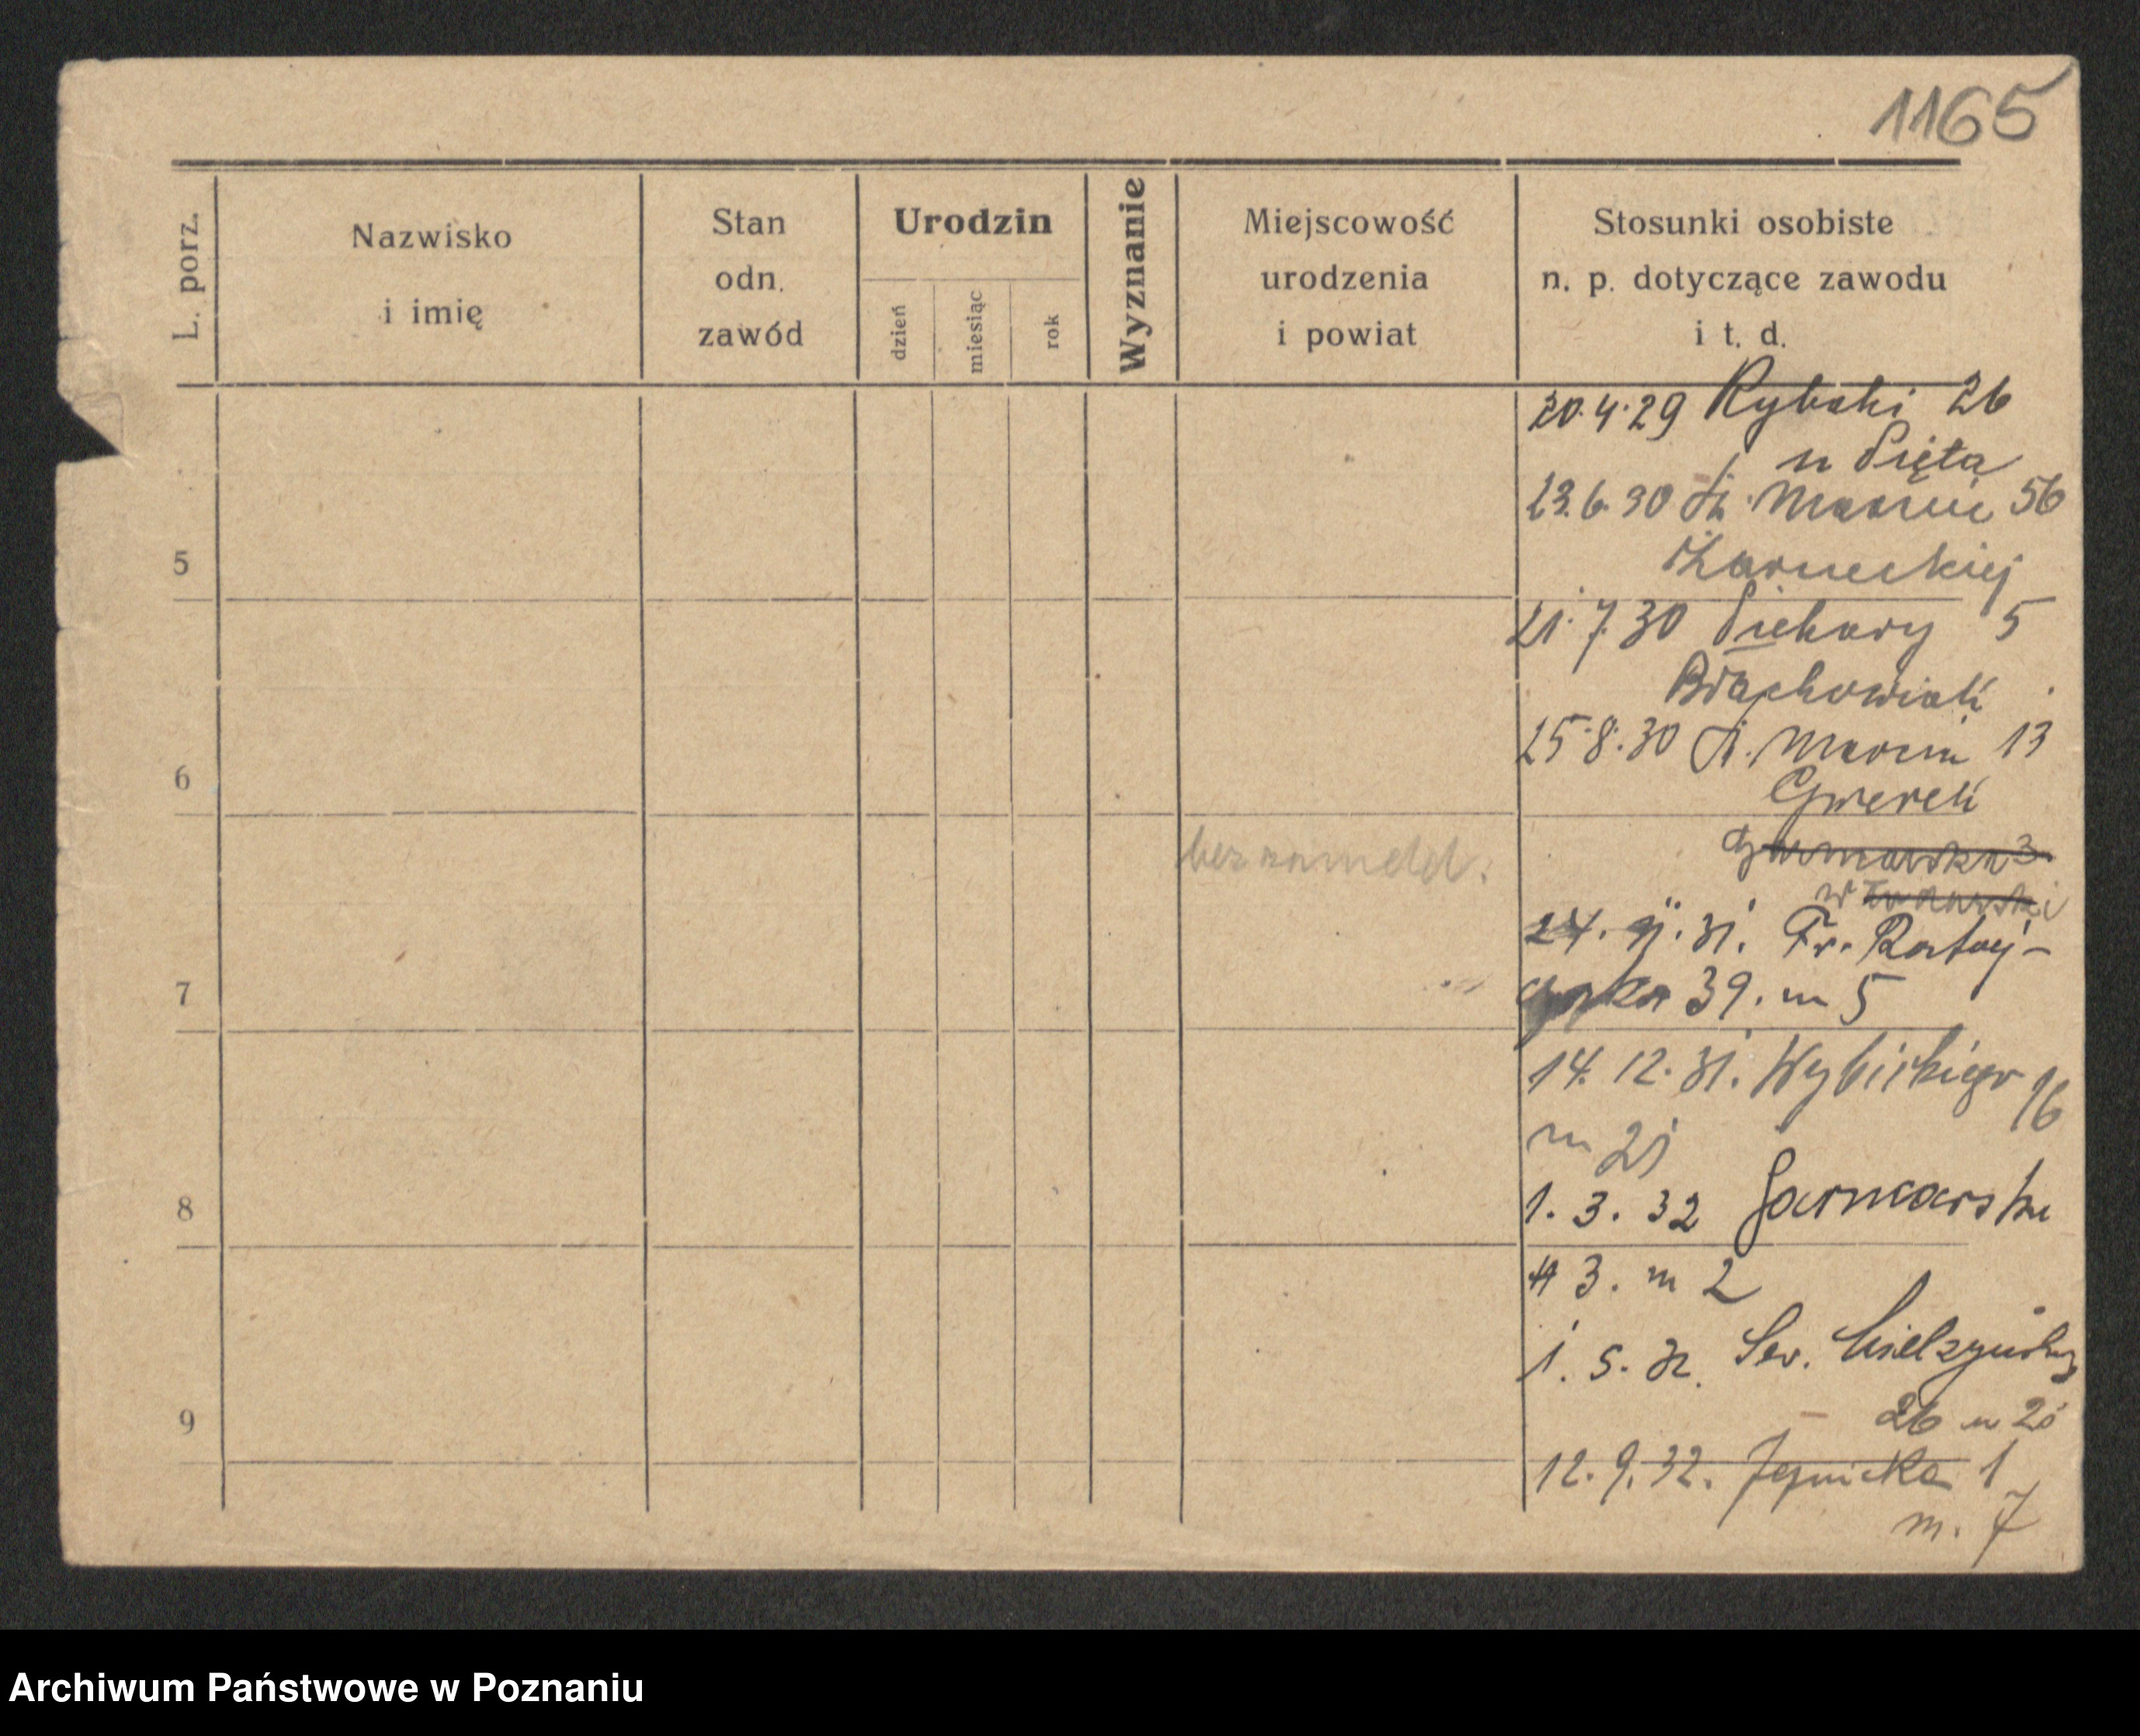 1165
L. porz.
Nazwisko
i imię
Stan
odn.
zawód
Urodzin
dzień
miesiąc
rok
Wyznanie
Miejscowość
urodzenia
i powiat
Stosunki osobiste
n. p. dotyczące zawodu
i t. d.
20.4.29 Rybaki 26
u Pięta
23.6.30 Marcin 56
Żarneckiej
5
21.7.30 Piekary 5
25.8.30 Marcin 13
6
Garncarska 3
24. 31. Fr. Rataj-
czaka 39. m 5
7
14. 12. 31. Wybickiego 16
m 21
1. 3. 32 Garncarska
8
3. m 2
1. 5. 32. Sew. Mielżyńskiego
26 m 21
9
12. 9. 32. 1
m. 7
Archiwum Państwowe w Poznaniu